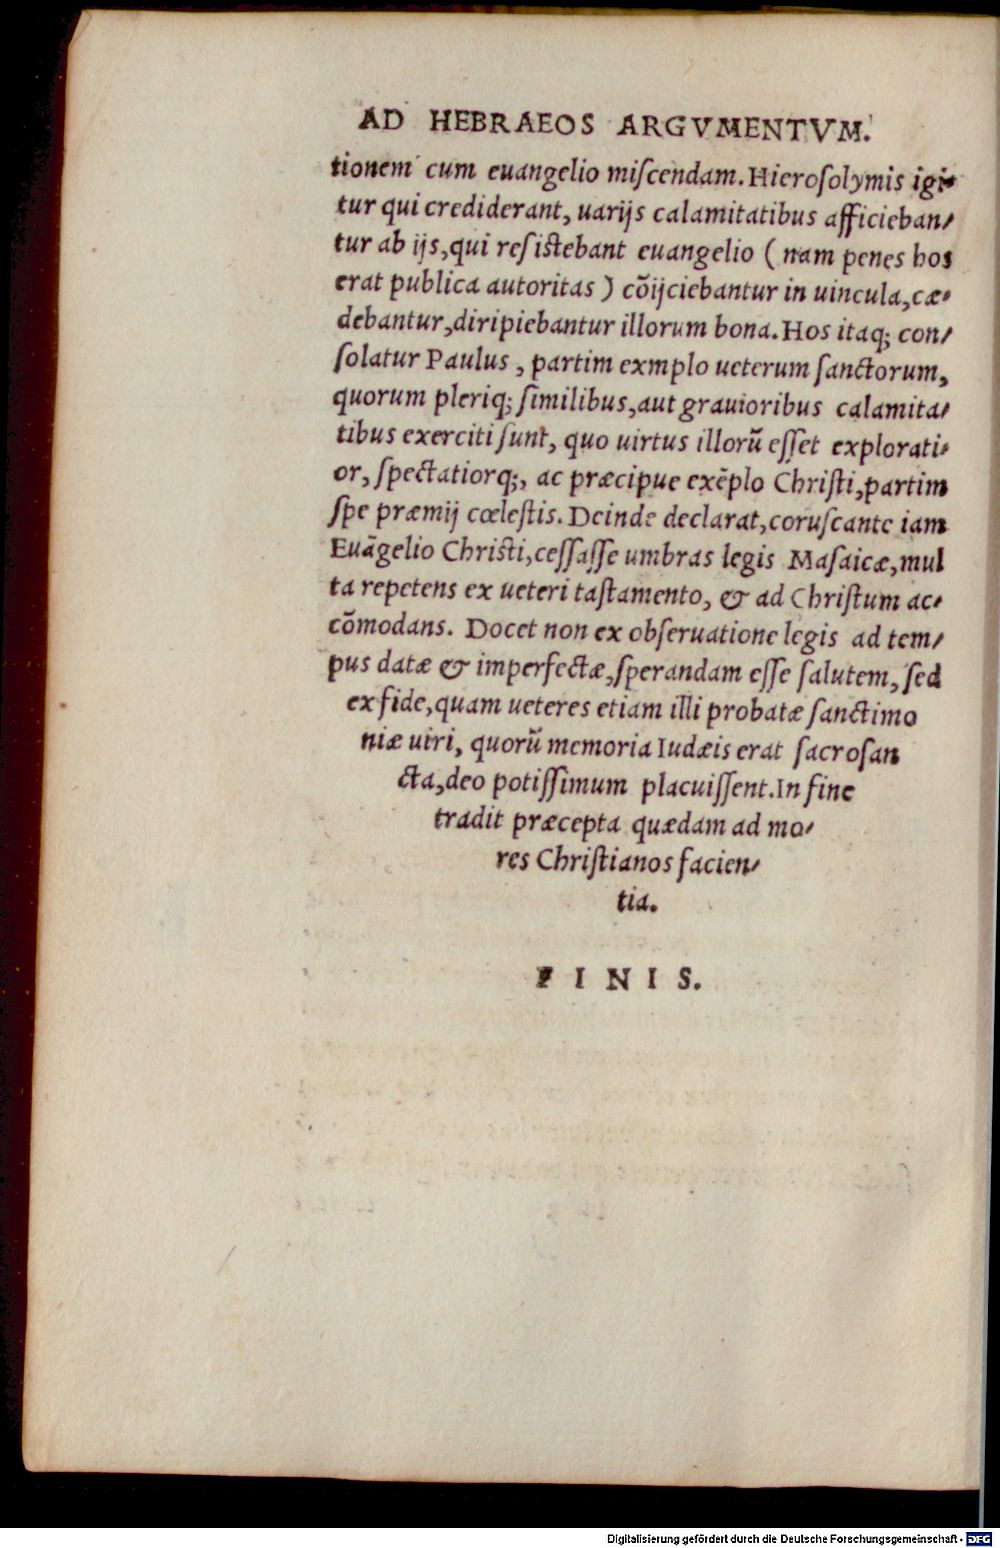 AD HEBRAEOS ARGVMENTVM.
tionem cum euangelio miſcendam. Hieroſolymis igi⸗
tur qui crediderant, uarijs calamitatibus afficieban⸗
tur ab ijs, qui reſiſtebant euangelio ( nam penes hos
erat publica autoritas ) cõijciebantur in uincula, cæ⸗
debantur, diripiebantur illorum bona. Hos itaq; con⸗
ſolatur Paulus, partim exmplo ueterum ſanctorum,
quorum pleriq; ſimilibus, aut grauioribus calamita⸗
tibus exerciti ſunt, quo uirtus illorũ eſſet explorati⸗
or, ſpectatiorq;, ac præcipue exẽplo Chriſti, partim
ſpe præmij cœleſtis. Deinde declarat, coruſcante iam
Euãgelio Chriſti, ceſſaſſe umbras legis Maſaicæ, mul
ta repetens ex ueteri taſtamento, & ad Chriſtum ac⸗
cõmodans. Docet non ex obſeruatione legis ad tem⸗
pus datæ & imperfectæ, ſperandam eſſe ſalutem, ſed
ex fide, quam ueteres etiam illi probatæ ſanctimo
niæ uiri, quorũ memoria Iudæis erat ſacroſan
cta, deo potiſſimum placuiſſent. In fine
tradit præcepta quædam ad mo⸗
res Chriſtianos facien⸗
tia.
F I N I S.
Digitalisierung gefördert durch die Deutsche Forschungsgemeinschaft - DFG